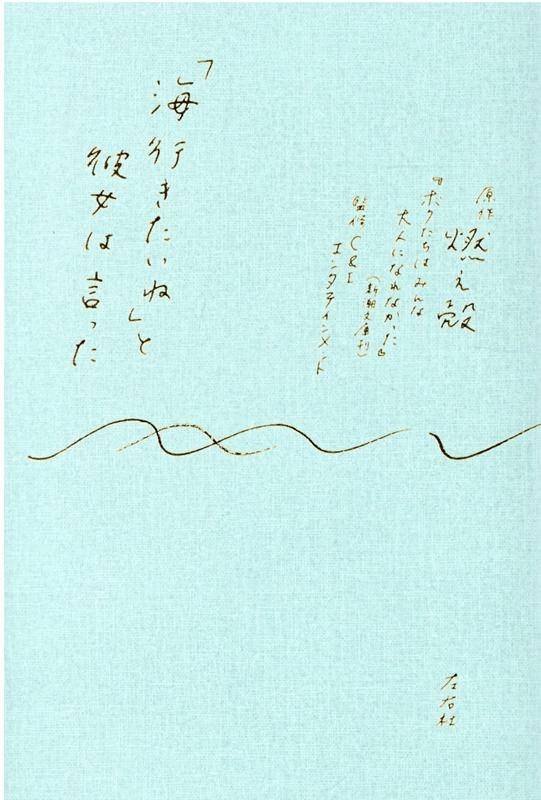 原作
燃え殻
『ボクたちはみんな
大人になれなかった』
(新潮文庫刊)
監修 C&I
エンタテインメント
「海行きたいね」と
彼女は言った
左右社